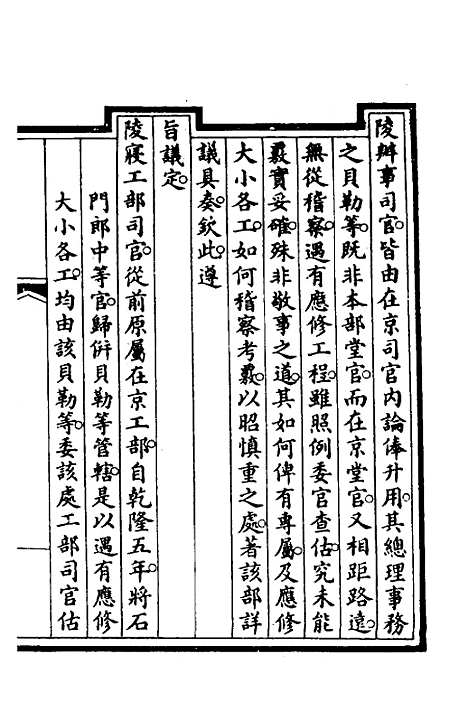 陵辦事司官。皆由在京司官内論俸升用。其總理事務
之貝勒等。既非本部堂官。而在京堂官。又相距路遠。
無從稽察。遇有應修工程。雖照例委官查估。究未能
覈實妥確。殊非敬事之道。其如何俾有專屬。及應修
大小各工。如何稽察考覈。以昭慎重之處。著該部詳
議具奏。欽此。遵
旨議定。
陵寢工部司官。從前原屬在京工部。自乾隆五年。將石
門郎中等官。歸併貝勒等管轄。是以遇有應修
大小各工。均由該貝勒等。委該處工部司官估